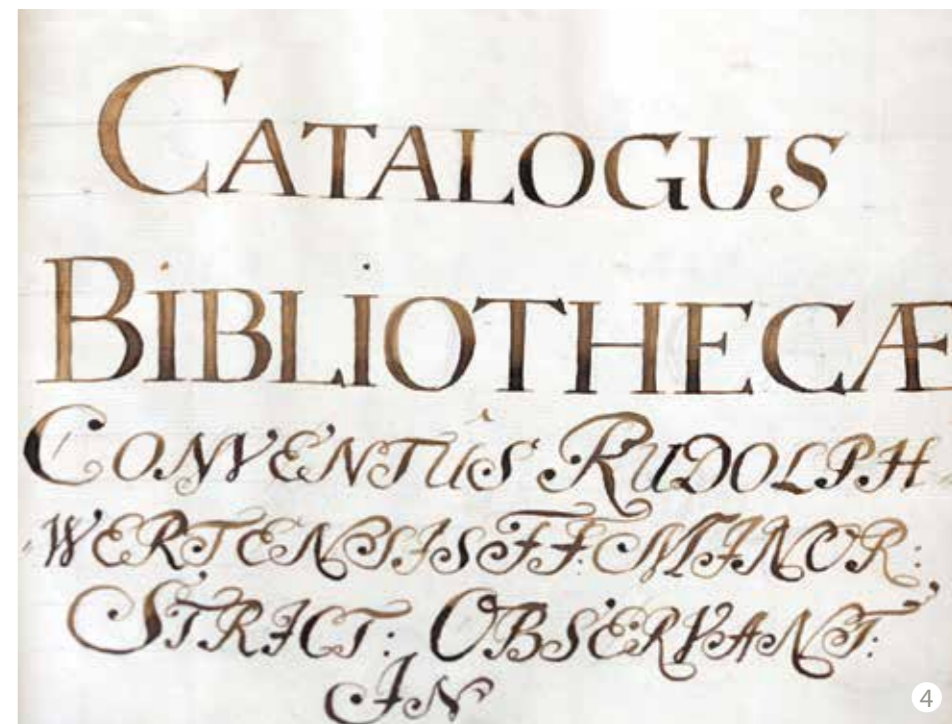 CATALOGUS
BIBLIOTHECÆ
CONVENTUS RUDOLPH
WERTENSIS FF: MINOR:
STRICT: OBSERVANT:
IN
4